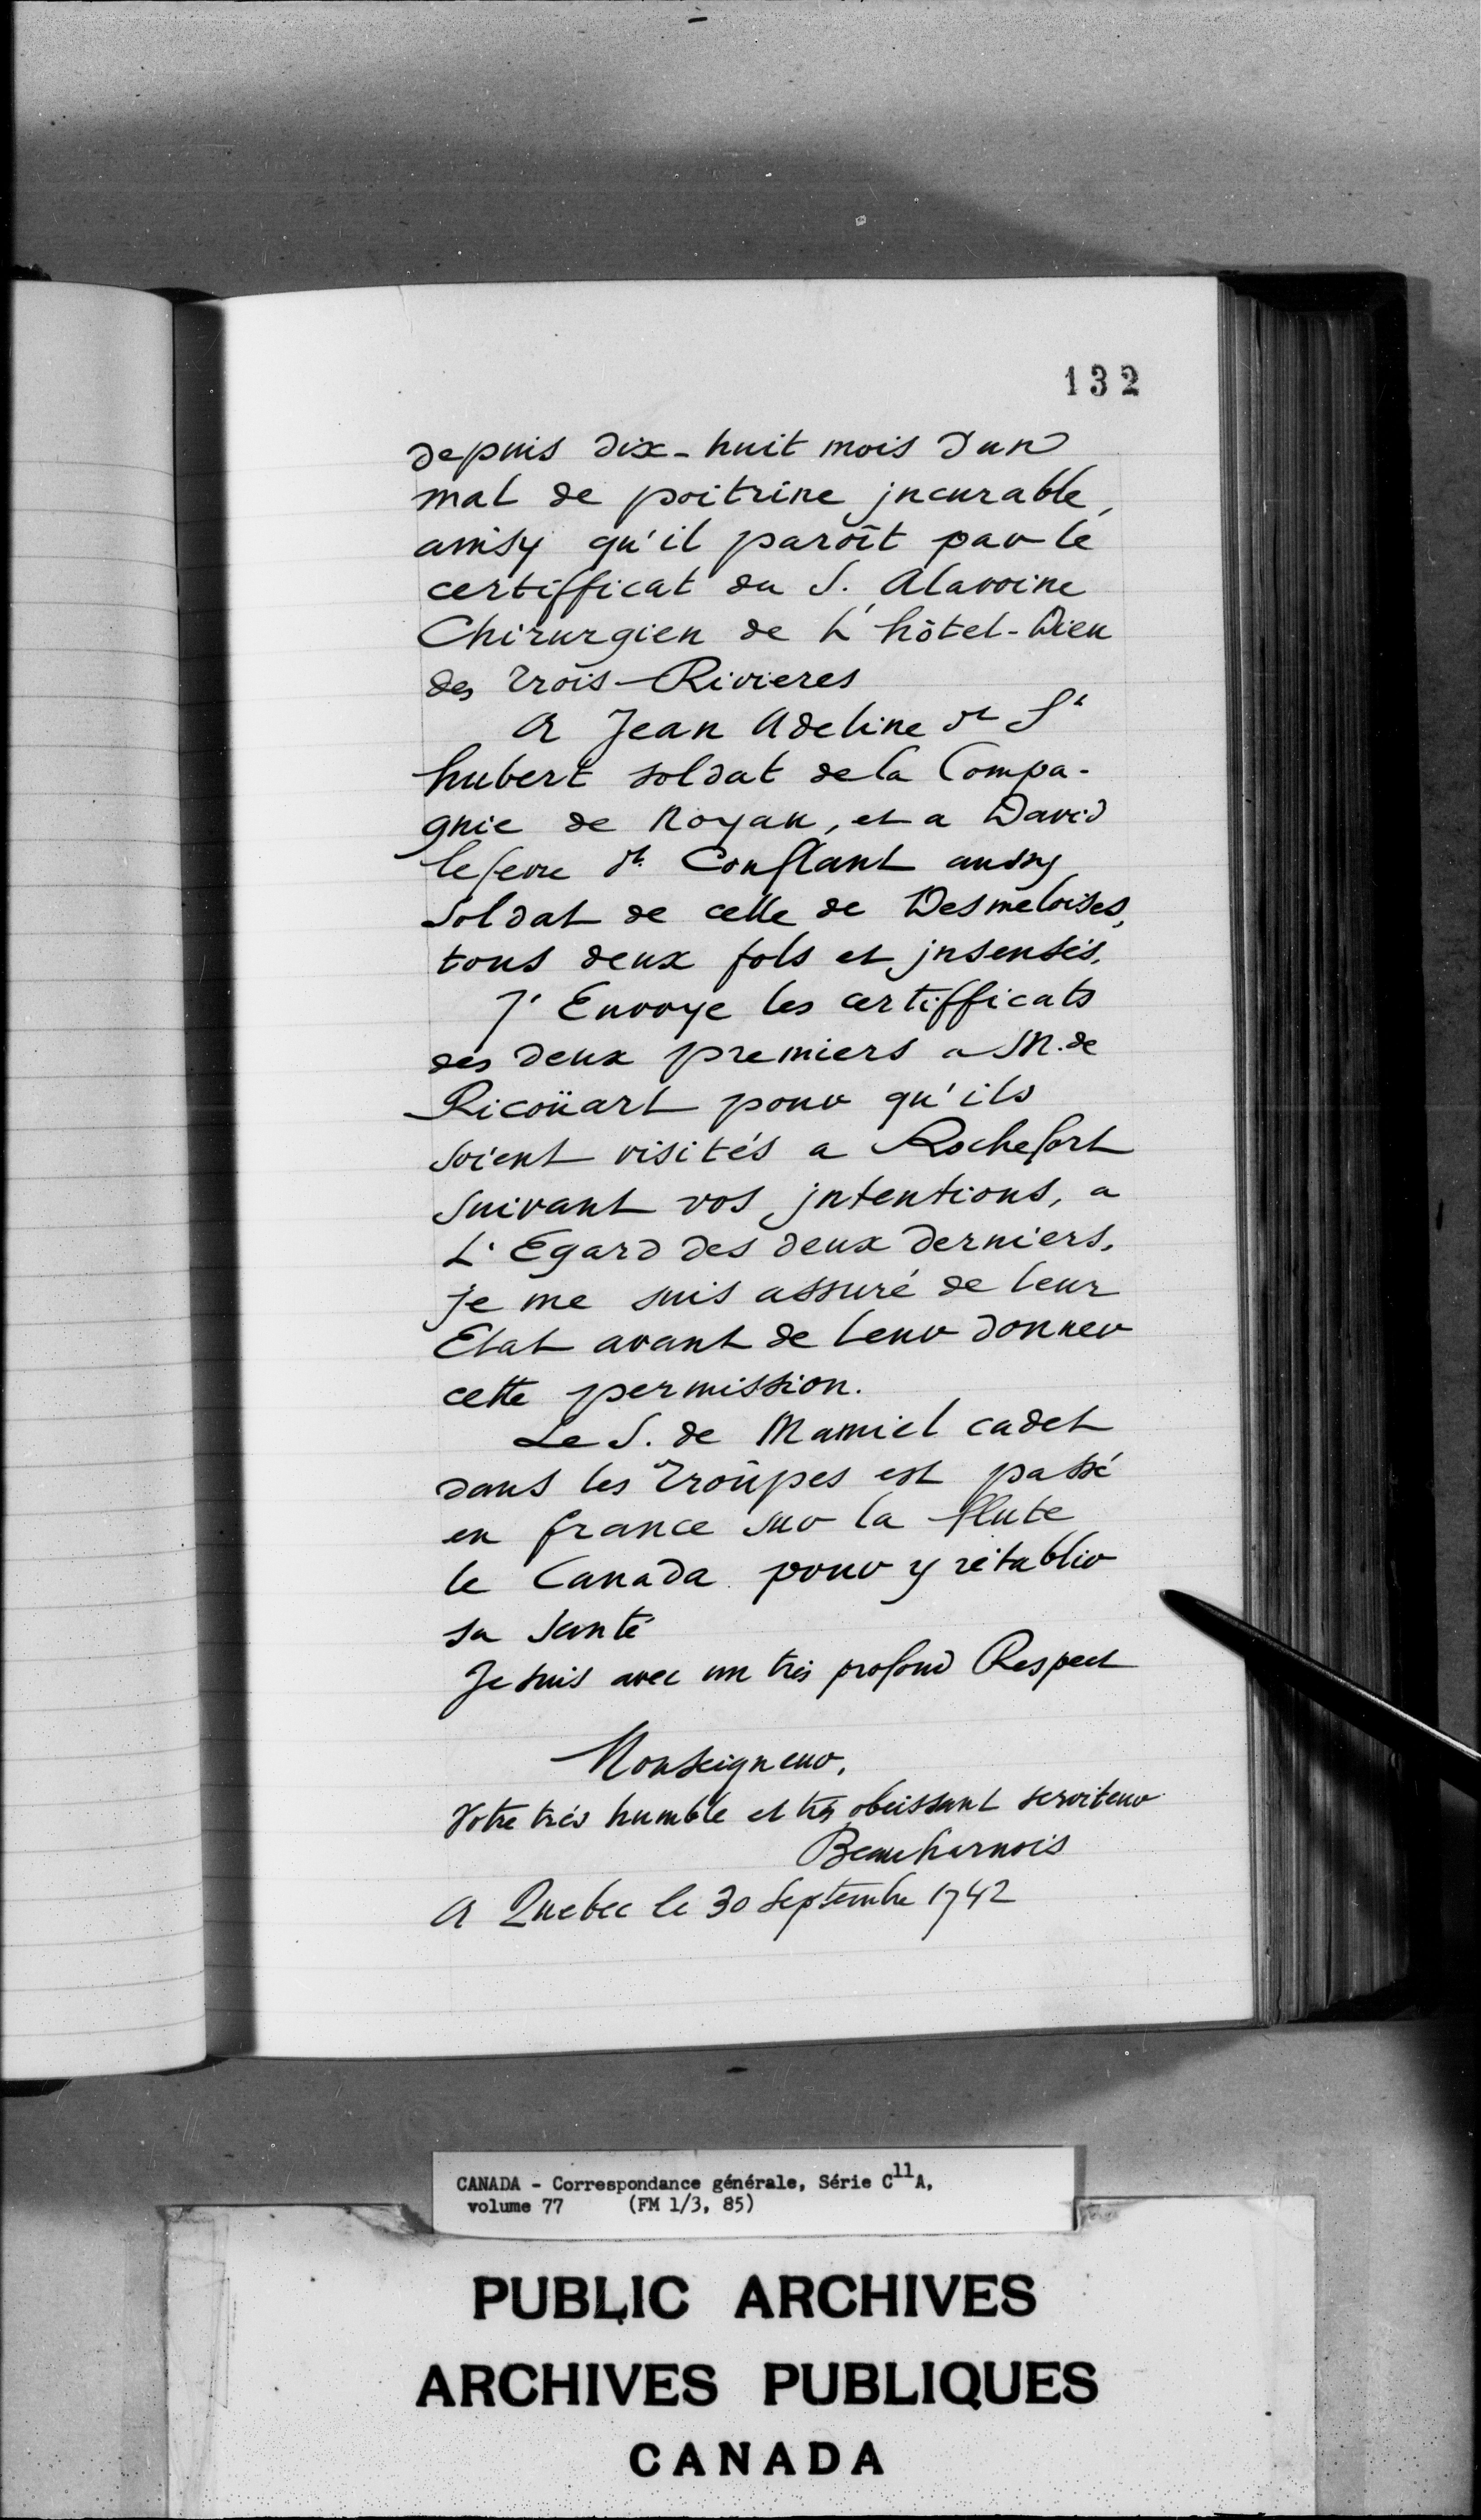 132
depuis dix-huit mois d'un
mal de poitrine jncurable,
ainsy qu'il paroît par le
certifficat du S. Alavoine
Chirurgien de L'hôtel-Dieu
des trois-Rivieres
A Jean Adeline dt St
hubert soldat de la Compa-
gnie de Noyan, et a David
lefevre dt. Conflant aussy
Soldat de celle de Desmeloises,
tous deux fols et jnsensés.
J'Envoye les certifficats
des deux premiers a M. de
Ricoüart pour qu'ils
soient visités a Rochefort
suivant vos jntentions, a
L'Egard des deux derniers,
je me suis assuré de leur
Etat avant de leur donner
cette permission.
Le S. de Mamiel cadet
dans les troupes est passé
en france sur la flute
le Canada pour y rétablir
sa santé
Je suis avec un très profond Respect
Monseigneur,
Votre très humble et très obeissant serviteur
Beauharnois
A Quebec le 30 Septembre 1742
CANADA - Correspondance générale, Série C11A,
volume 77 (FM 1/3, 85)
PUBLIC ARCHIVES
ARCHIVES PUBLIQUES
CANADA